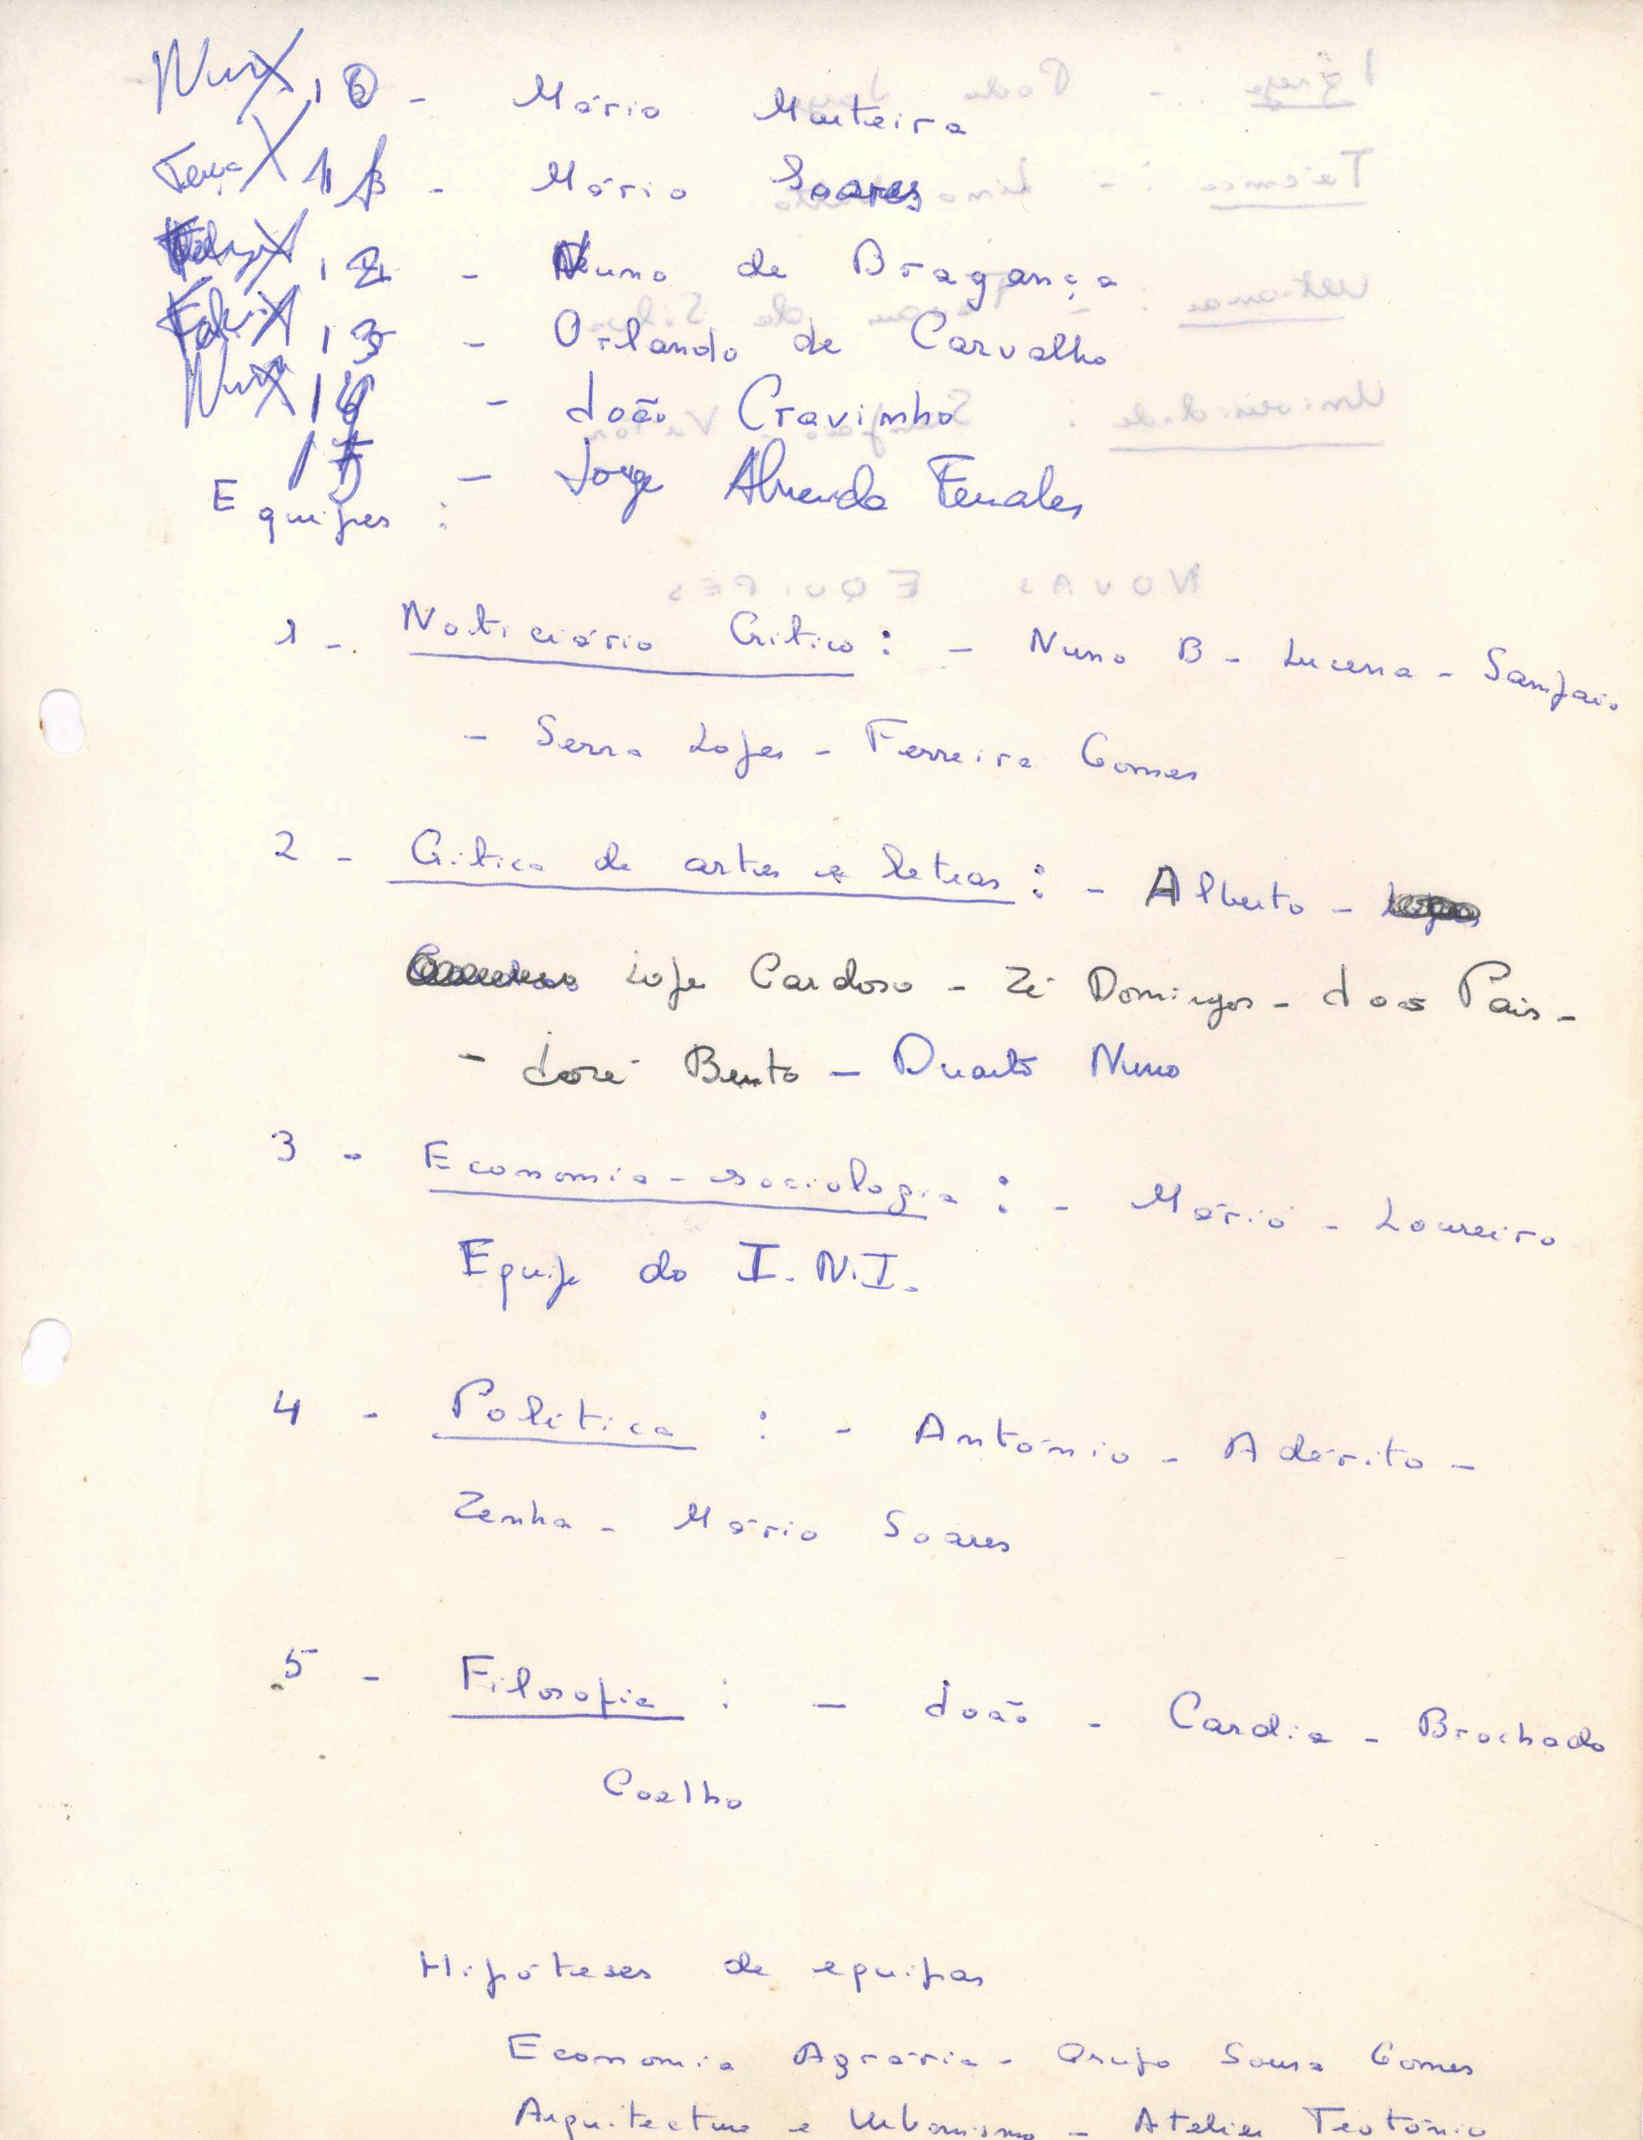 10 - Mário Murteira
11 - Mário Soares
12 - Nuno de Bragança
13 - Orlando de Carvalho
14 - João Cravinho
15 - Jorge Almeida
Equipes :
1 - Noticiário Crítico : - Nuno B - Lucena - Sampaio
- Serra Lopes - Ferreira Gomes
2 - Crítica de artes e letras : - Alberto -
Lopes Cardoso - Zé Domingos - João Pais -
- José Bento - Duarte Nuno
3 - Economia - sociologia : - Mário - Loureiro
Equipe do I.N.I.
4 - Política : - António - Adérito -
Zenha - Mário Soares
5 - Filosofia : - João - Cardia - Brochado
Coelho
Hipóteses de equipas
Economia Agrária - Grupo Sousa Gomes
Arquitectura e Urbanismo - Atelier Teotónio